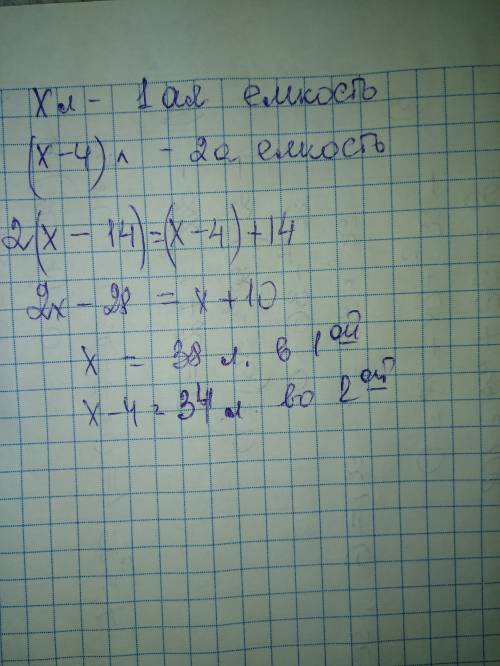 Xл - 1ая емкость
(x-4) л - 2а емкость
2(x - 14)=(x-4)+14
2x - 28 = x+10
x = 38 л. в 1ой
x-4 = 34 л во 2ой